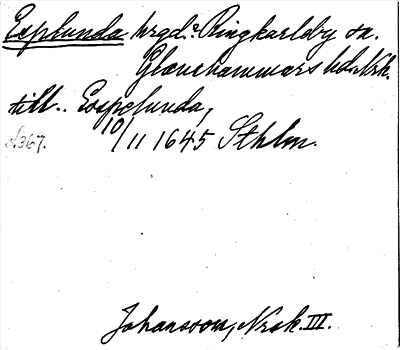 Esplunda hrgd: Ringkarleby sn.
Glanshammars hd. Nrk.
till.. Esspelunda,
10/11 1645 Sthlm.
367.
Johansson, Nrsk. III.